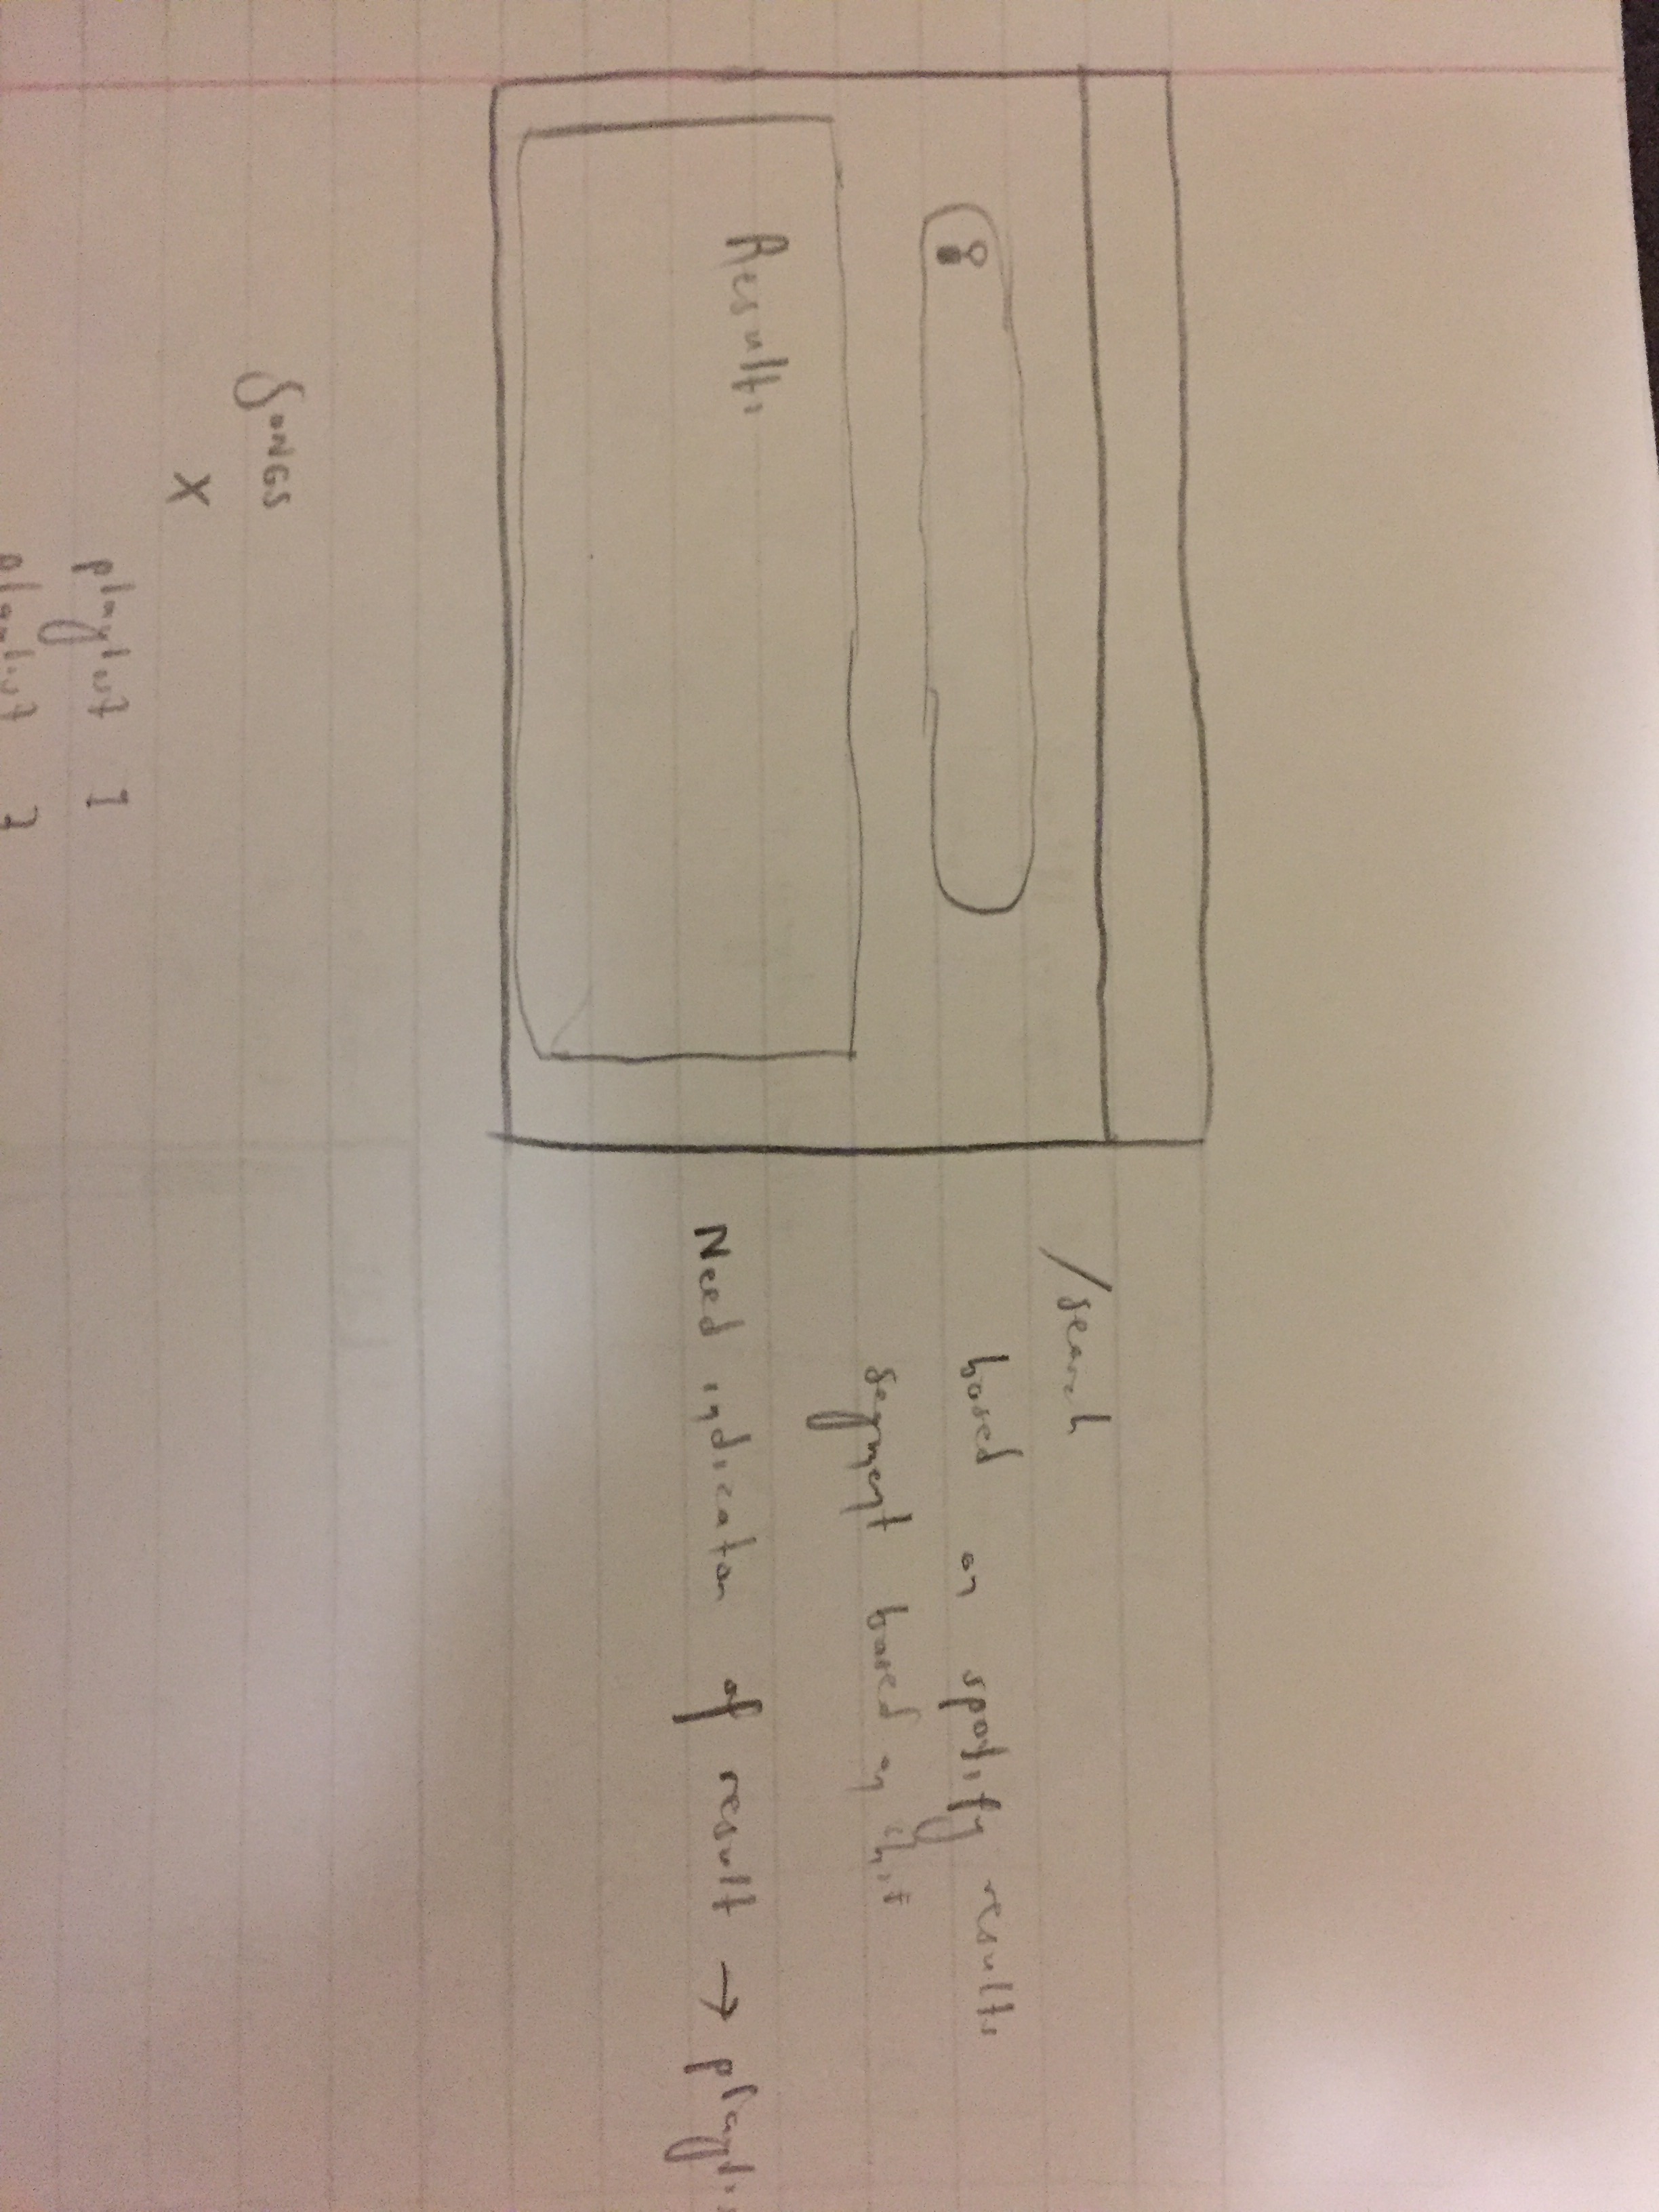 /search
based on spotify results
segment based on this
Results
Need indicator of result → playli
SONGS
X
playlist 1
playlist 2